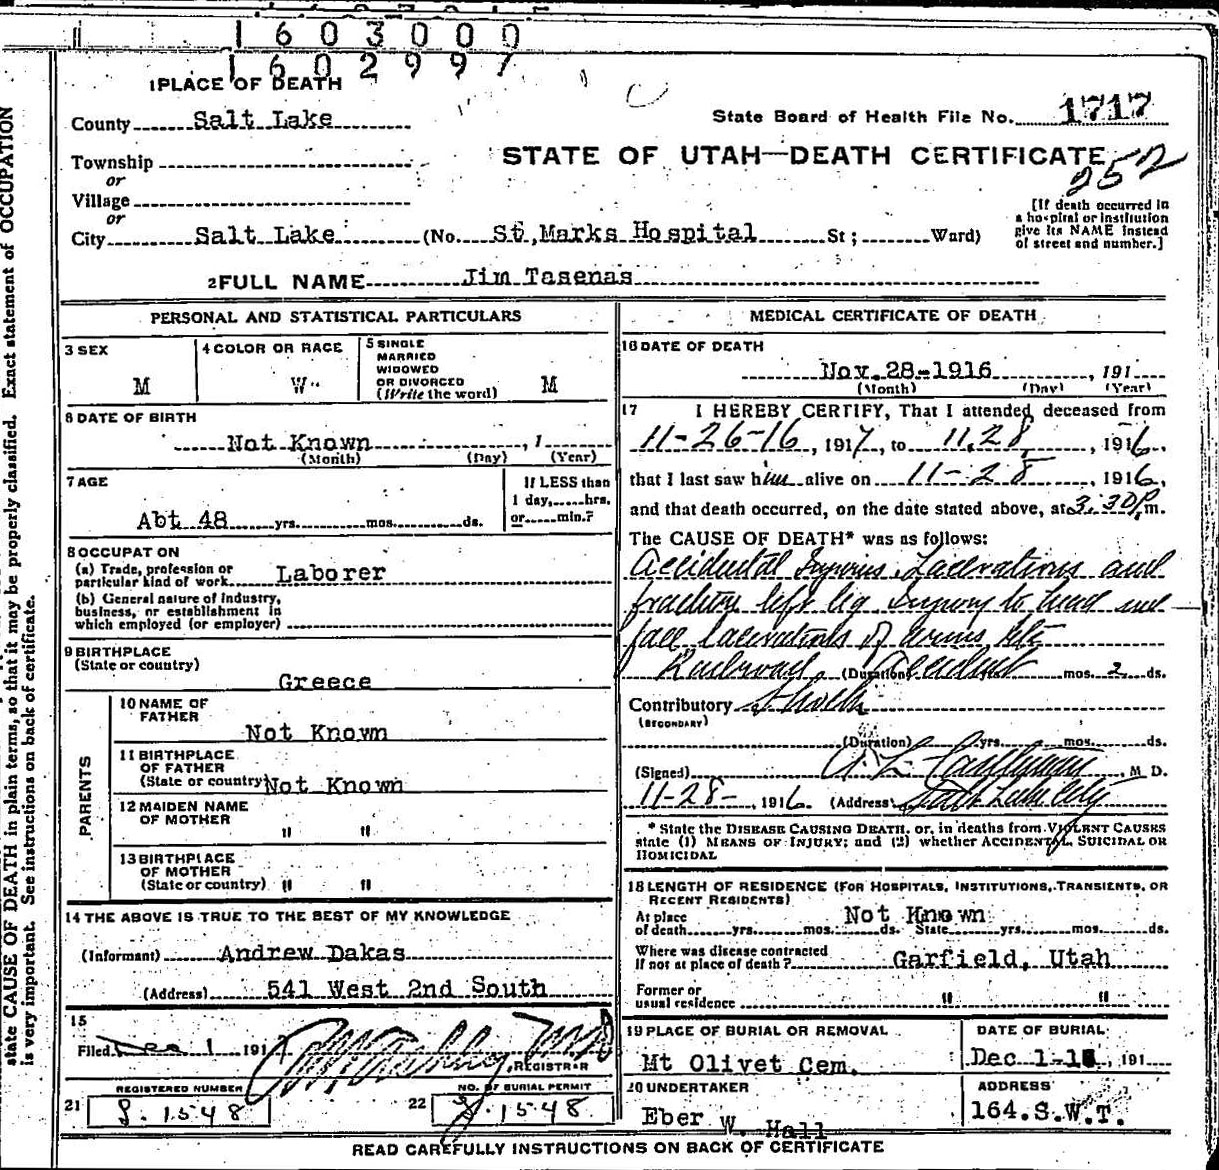 1603000
1602997
1 PLACE OF DEATH
County Salt Lake
State Board of Health File No. 1717
Township
or
STATE OF UTAH—DEATH CERTIFICATE
252
Village
or
City Salt Lake (No. St,Marks Hospital St; Ward)
[If death occurred in
a hospital or institution
give its NAME instead
of street and number.]
2 FULL NAME Jim Tasenas
PERSONAL AND STATISTICAL PARTICULARS
3 SEX
M
4 COLOR OR RACE
W
5 SINGLE
MARRIED
WIDOWED
OR DIVORCED
(Write the word) M
6 DATE OF BIRTH
Not Known , 1
(Month) (Day) (Year)
7 AGE
Abt 48 yrs. mos. ds.
If LESS than
1 day, hrs.
or min.?
8 OCCUPAT ON
(a) Trade, profession or
particular kind of work Laborer
(b) General nature of Industry,
business, or establishment in
which employed (or employer)
9 BIRTHPLACE
(State or country)
Greece
PARENTS
10 NAME OF
FATHER
Not Known
11 BIRTHPLACE
OF FATHER
(State or country) Not Known
12 MAIDEN NAME
OF MOTHER
" "
13 BIRTHPLACE
OF MOTHER
(State or country) " "
14 THE ABOVE IS TRUE TO THE BEST OF MY KNOWLEDGE
(Informant) Andrew Dakas
(Address) 541 West 2nd South
15
Filed Dec 1 191
REGISTRAR
REGISTERED NUMBER
21 S. 1548
NO. OF BURIAL PERMIT
22 S. 1548
MEDICAL CERTIFICATE OF DEATH
16 DATE OF DEATH
Nov. 28-1916 , 191
(Month) (Day) (Year)
17 I HEREBY CERTIFY, That I attended deceased from
11-26-16, 191 , to 11,28, 1916,
that I last saw him alive on 11-28, 1916,
and that death occurred, on the date stated above, at 3:30 P.m.
The CAUSE OF DEATH* was as follows:
Accidental Injuries, Lacerations and
fracture left leg Injury to head and
face lacerations of arms etc
Railroad (Duration) Accident mos. 2 ds.
Contributory Shock
(SECONDARY)
(Duration) yrs. mos. ds.
(Signed) M. D.
11-28-, 1916. (Address) Salt Lake City
* State the DISEASE CAUSING DEATH, or, in deaths from VIOLENT CAUSES
state (1) MEANS OF INJURY; and (2) whether ACCIDENTAL, SUICIDAL OR
HOMICIDAL
18 LENGTH OF RESIDENCE (FOR HOSPITALS, INSTITUTIONS, TRANSIENTS, OR
RECENT RESIDENTS)
Not Known
At place
of death yrs. mos. ds. State yrs. mos. ds.
Where was disease contracted
If not at place of death? Garfield, Utah
Former or
usual residence " "
19 PLACE OF BURIAL OR REMOVAL
Mt Olivet Cem.
DATE OF BURIAL
Dec 1-16, 191
20 UNDERTAKER
Eber W. Hall
ADDRESS
164.S.W.T.
READ CAREFULLY INSTRUCTIONS ON BACK OF CERTIFICATE
state CAUSE OF DEATH in plain terms, so that it may be properly classified. Exact statement of OCCUPATION
is very important. See instructions on back of certificate.